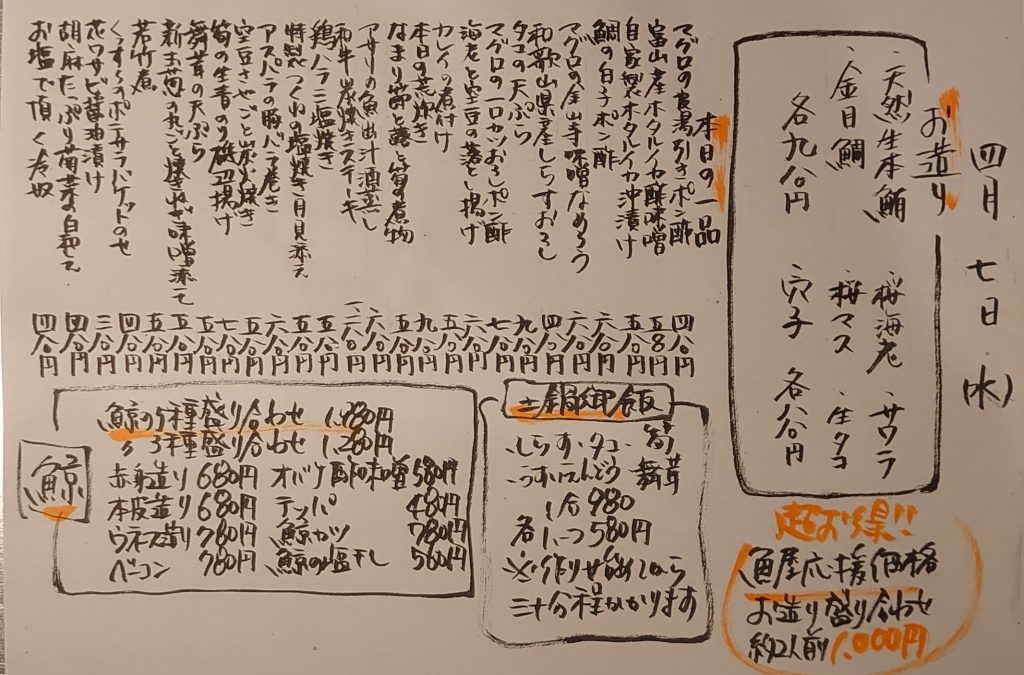 四月七日(水)
お造り
・天然生本鮪 ・桜海老 ・サワラ
・金目鯛 ・桜マス ・生タコ
各九八〇円 ・穴子 各八八〇円
本日の一品
マグロの皮湯引きポン酢 四八〇円
富山産ホタルイカ酢味噌 五八〇円
自家製ホタルイカ沖漬け 五八〇円
鯛の白子ポン酢 六八〇円
マグロの金山寺味噌なめろう 六八〇円
和歌山県産しらすおろし 四八〇円
タコの天ぷら 九八〇円
マグロの一口カツおろしポン酢 七八〇円
海老と空豆の落とし揚げ 六八〇円
カレイの煮付け 五八〇円
本日の荒炊き 九八〇円
なまり節と蕗と筍の煮物 五八〇円
アサリの魚出汁酒蒸し 六八〇円
和牛炭焼きステーキ
鶏ハラミ塩焼き 五八〇円
特製つくねの塩焼き月見添え 五八〇円
アスパラの豚バラ巻き 六八〇円
空豆さやごと炭火焼き 五八〇円
筍の生青のり磯辺揚げ 七八〇円
舞茸の天ぷら 五八〇円
新玉葱の丸ごと焼きねぎ味噌添えて 五八〇円
若竹煮 五八〇円
ポテサラバケットのせ 四八〇円
花ワサビ醤油漬け 三八〇円
胡麻たっぷり菊菜の白和え 四八〇円
お塩で頂く冷奴 四八〇円
土鍋御飯
・しらす・タコ・筍
・うすいえんどう・舞茸
1合980
各1.5合1,580円
※作り始めてから
三十分程かかります
鯨
鯨の5種盛り合わせ 1,980円
〃3種盛り合わせ 1,280円
赤身造り 680円 オバケ酢味噌 580円
本皮造り 680円 テッパ 480円
ウネス造り 780円 鯨カツ 780円
ベーコン 780円 鯨の塩干し 580円
超お得!!
魚屋応援価格
お造り盛り合わせ
約2人前 1,000円